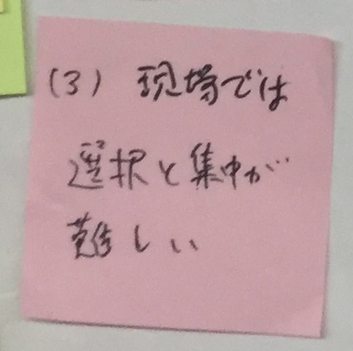 (3) 現場では
選択と集中が
難しい